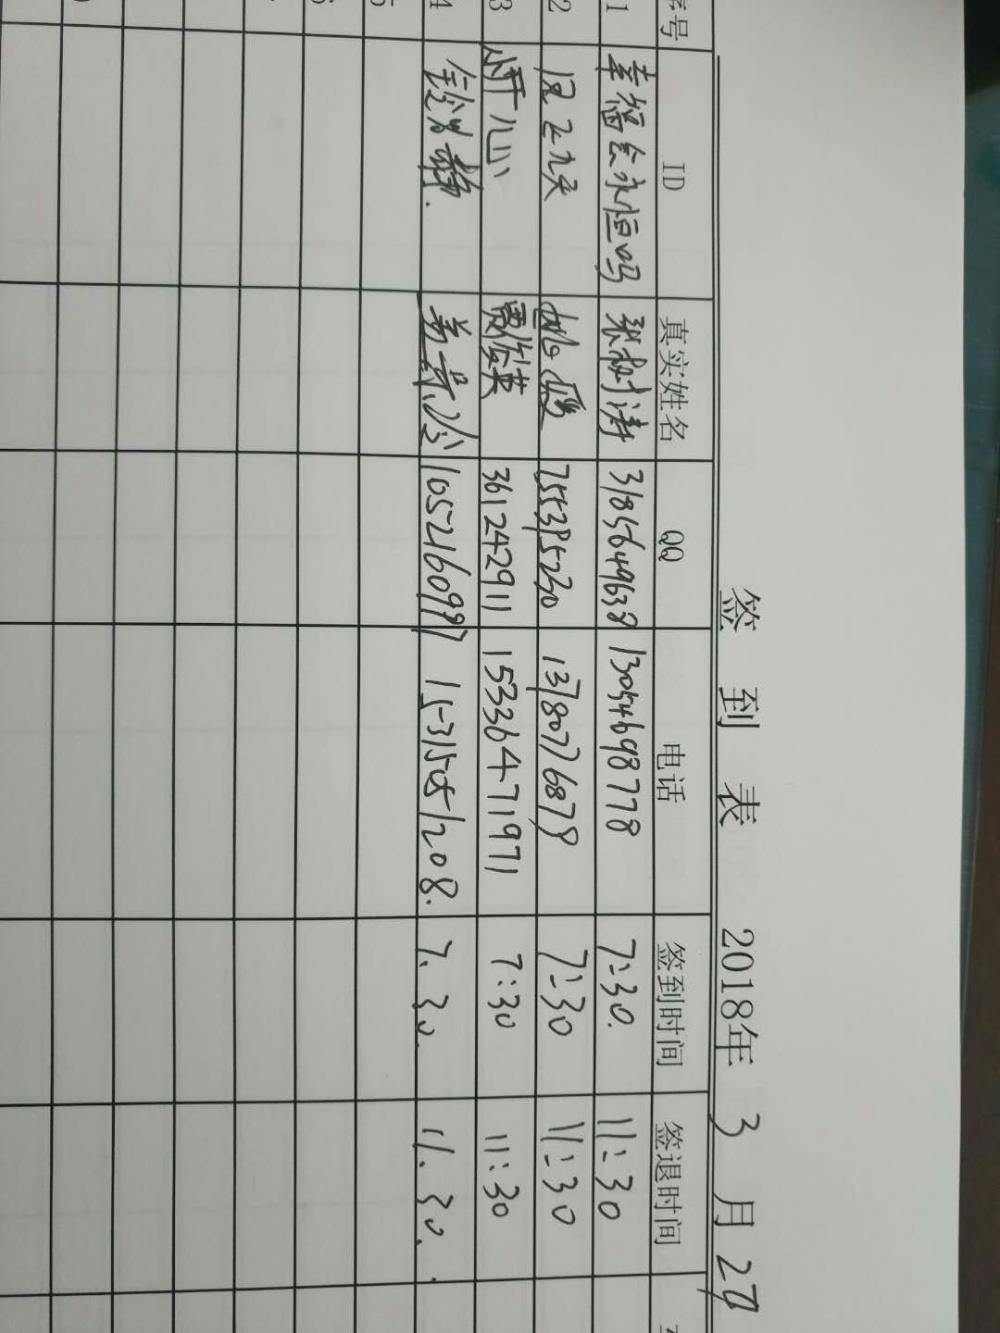 签到表 2018年 3 月 27
序号 ID 真实姓名 QQ 电话 签到时间 签退时间
1 幸福会永恒吗 张树涛 318564963 13054698778 7:30. 11:30
2 13780776879 7:30 11:30
3 开心 贾俊英 361242911 15336471971 7:30 11:30
4 1052160997 15315051208. 7.30. 11.30.
5
6